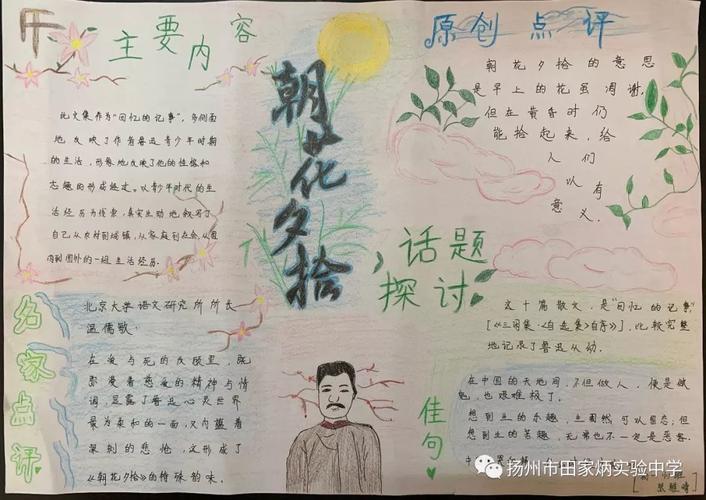 主要内容
此文集作为"回忆的记事",多侧面
地反映了作者鲁迅青少年时期
的生活,形象地反映了他的性格和
志趣的形成经过。以青少年时代的生
活经历为线索,真实生动地叙写了
自己从农村到城镇,从家庭到社会,从国
内到国外的一组生活经历.
朝花夕拾
原创点评
朝花夕拾的意思
是早上的花虽凋谢,
但在黄昏时仍
能捡起来,给
人们
以有
意义.
话题
探讨
这十篇散文,是"回忆的记事"
[《三闲集·《自选集》自序》],比较完整
地记录了鲁迅从幼.
名家点评
北京大学语文研究所所长
温儒敏:
在爱与死的反顾里,既
弥漫着慈爱的精神与情
调,显露了鲁迅心灵世界
最为柔和的一面,又内蕴着
深刻的悲怆,交形成了
《朝花夕拾》的特殊韵味。
佳句
在中国的天地间,不但做人,便是做
鬼,也艰难极了.
想到生的乐趣,生固然可以留恋;但
想到生的苦趣,无常也不一定是恶客.
扬州市田家炳实验中学